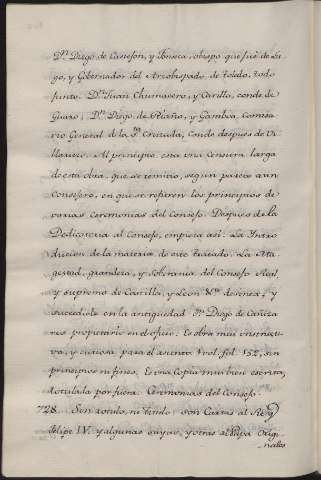 Dn. Diego de Castejon, y Fonseca, obispo que fué de Lu-
go, y Gobernador del Arzobispado de Toledo, todo
junto. Dn. Juan Chumacero, y Carillo, conde de
Guaro; Dn. Diego de Riaño, y Gamboa, Comisa-
rio General de la Sta. Cruzada, conde despues de Vi-
llariezo. Al principio esta una censura larga
de esta obra, que se remitio, segun parece a un
Consejero, en que se refieren los principios de
varias ceremonias del Consejo. Despues de la
Dedicatoria al Consejo, empieza así: La Intro-
duccion de la materia de este tratado. La Ma-
gestad, grandeza, y soberania del Consejo Real
y supremo de Castilla, y Leon &c.
sucedióle en la antiguedad Dn. Diego de Cañiza-
res propietario en el oficio: Es obra mui instructi-
va, y curiosa para el asunto 1 vol. fol. 152, sin
principios ni fines. Es una copia mui bien escrita,
rotulada por fuera: Ceremonias del Consejo.
728. Sin rotulo, ni titulo: son Cartas al Rey Dn.
Felipe IV. y algunas suyas, y otras al Papa Origi-
nales